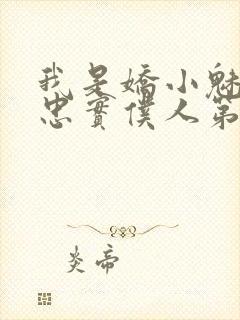 我是嬌小魅
忠實僕人第
炎帝